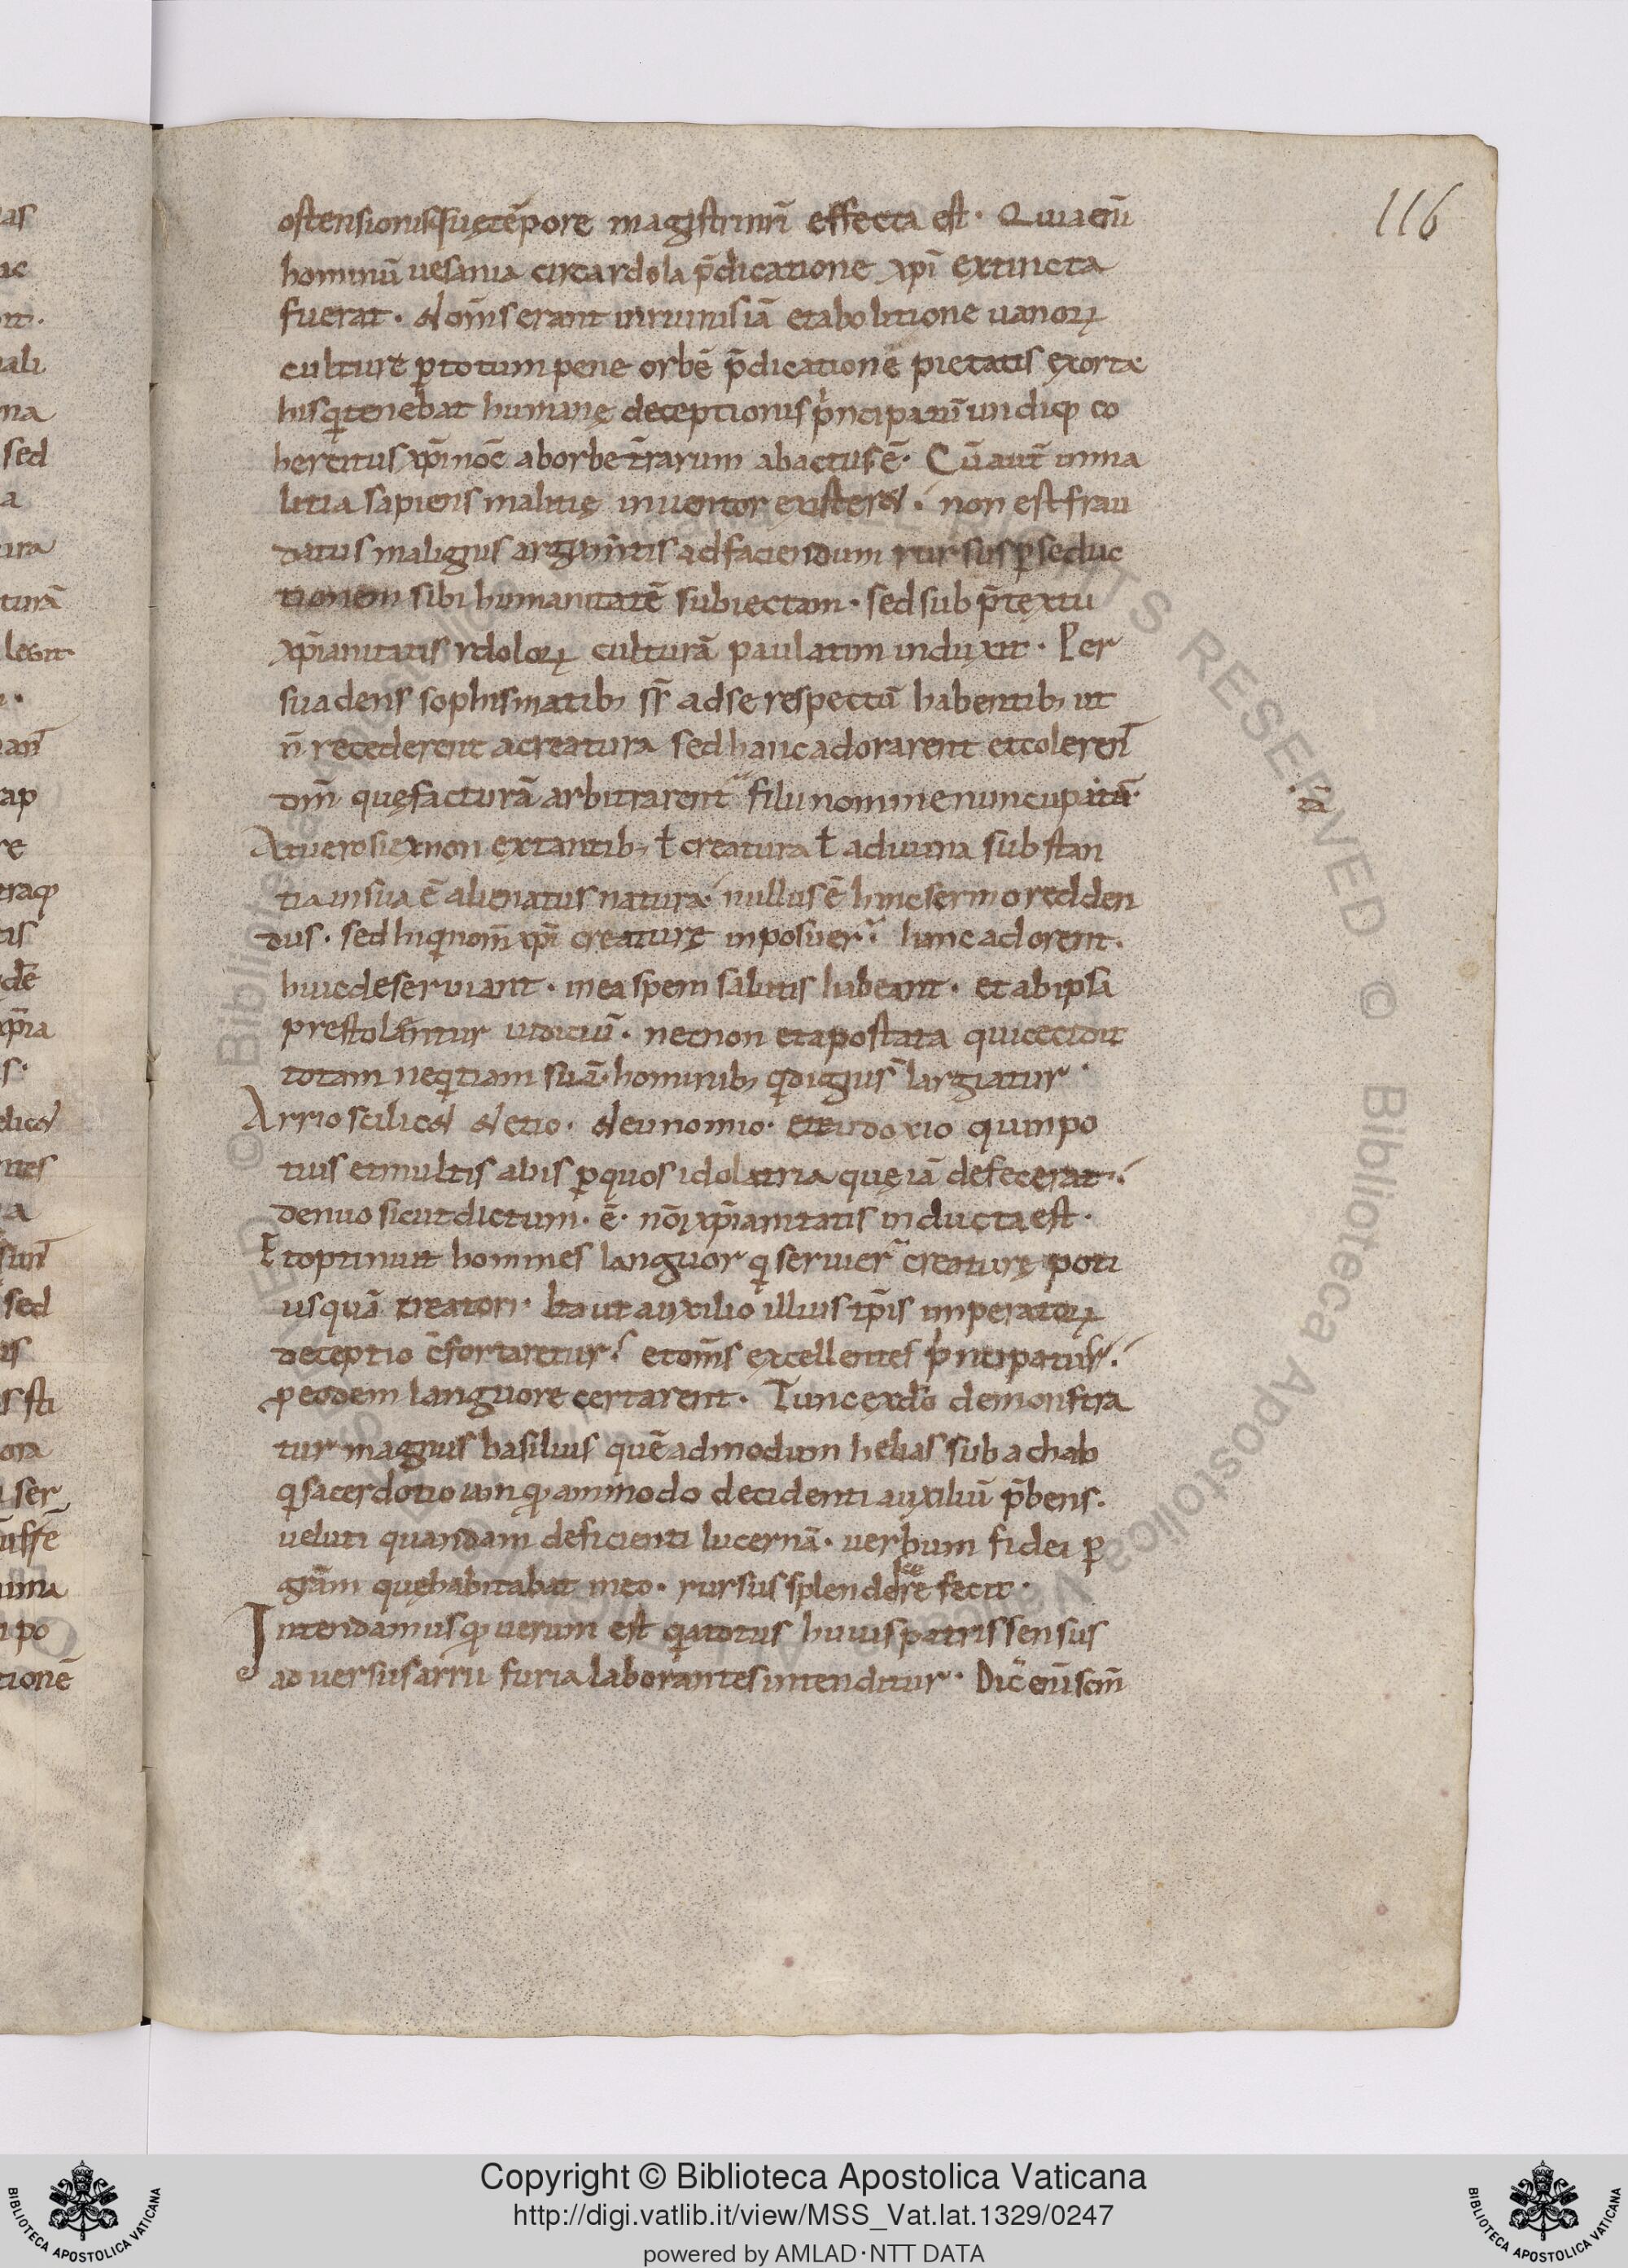 116
ostensionis suę tēpore magistri nr̄i effecta est. Quia eni̅
hominū uesania circa ydola p̄dicatione xpī extincta
fuerat. et om̄s erant in ruinis iā et abolitione uanoꝝ
culturę ꝑ totum pene orbē p̄dicatione pietatis exorta
his q̇ tenebat humanę deceptionis pˈncipatū undiqꝫ co
hercitus xp̄i noē ab orbe t̄rarum abactus ē. Cū aut̄ in ma
litia sapiens malitię inuentor existeret. non est frau
datus malignus argum̄tis ad faciendum rursus ꝑ seduc
tionem sibi humanitatē subiectam. sed sub p̄textu
xp̄ianitatis ydoloꝝ culturā paulatim induxit. Per
suadens sophismatibꝫ sr̄ ad se respectū habentibꝫ ut
n̄ recederent a creatura sed hanc adorarent et colerent̄
dm̄ quę facturā arbitrarent filii nomine nuncupatā.
tā
At uero si ex non extantibꝫ ł creatura ł a diuina substan
tia in sua ē alienatus natura. nullus ē hinc sermo redden
dus. sed hi q̇ nom̄ xpī creaturę inposuer̄. hunc adorent.
huic deseruiant. in ea spem salutis habeant. et ab ipsa
prestolentur iudiciū. necnon et apostata qui cecidit
totam neq̇tiam suā. hominibꝫ q̇ dignus largiatur.
Arrio scilicet et etio. et eunomio. et eudoxio quin po
tius et multis aliis ꝑ quos idolatria quę iā defecerat.
denuo sicut dictum. ē. nōi xp̄ianitatis inducta est.
Et optinuit homines languor q̇ seruier̄ creaturę poti
us quā creatori. Ita ut auxilio illius tp̄is imperatoꝝ
deceptio c̄fortaretur. et om̄s excellentes pˈncipatus.
ꝓ eodem languore certarent. Tunc ex dō demonstra
tur magnus basilius quēadmodum helias sub achab
q̇ sacerdotio iam quˈammodo decidenti auxiliū p̄bens.
ueluti quandam deficienti lucernā. uerbum fidei ꝑ
grām quę habitabat in eo. rursus splendere fecit.
Intendamus qꝫ uerum est q̇a totus huius patris sensus
aduersus arrii furia laborantes intenditur. Dic̄ eni̅ scm̄
Copyright © Biblioteca Apostolica Vaticana
http://digi.vatlib.it/view/MSS_Vat.lat.1329/0247
powered by AMLAD·NTT DATA